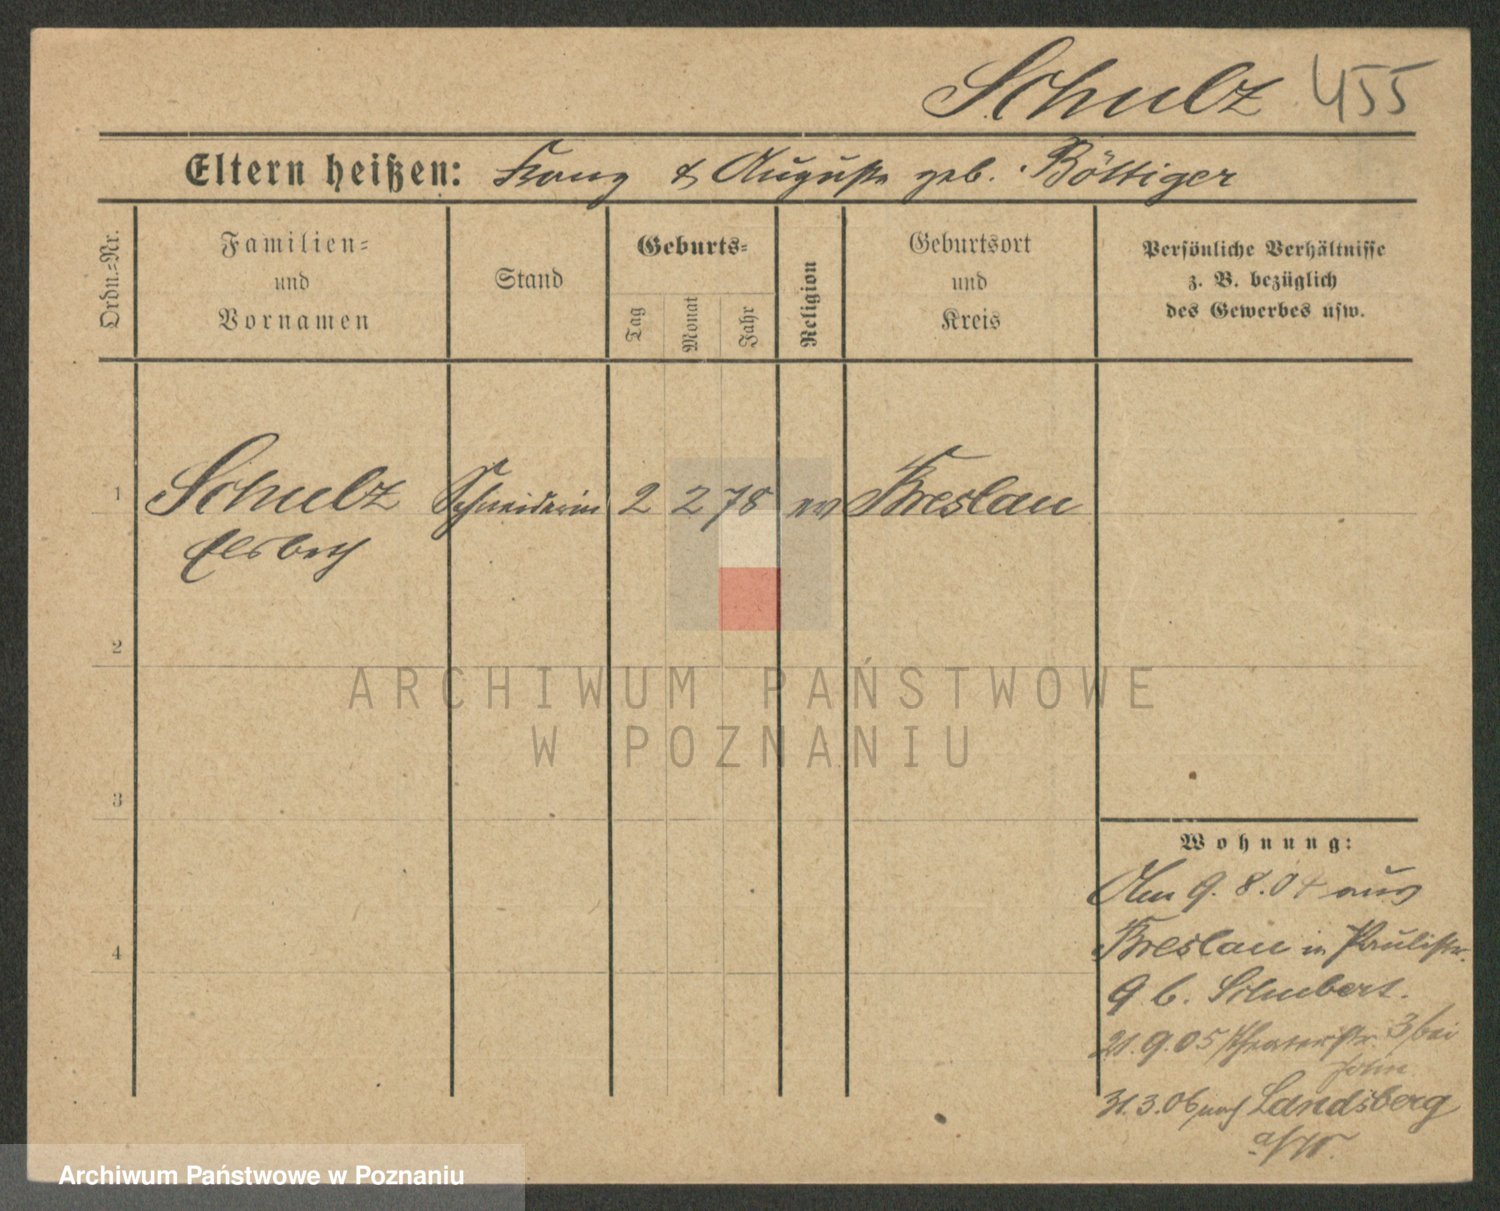 Schulz 455
Eltern heißen: Franz & Auguste geb. Böttiger
Ordn.=Nr.
Familien=
und
Vornamen
Stand
Geburts=
Tag
Monat
Jahr
Religion
Geburtsort
und
Kreis
Persönliche Verhältnisse
z. B. bezüglich
des Gewerbes usw.
1 Schulz Schneiderin 2 2 78 ev Breslau
Elsbeth
2
3
4
Wohnung:
Am 9. 8. 04 aus
Breslau in Paulistr.
9 b. Schubert.
21. 9. 05 Theaterstr. 3 bei
John
31. 3. 06 nach Landsberg
a/W.
ARCHIWUM PAŃSTWOWE
W POZNANIU
Archiwum Państwowe w Poznaniu